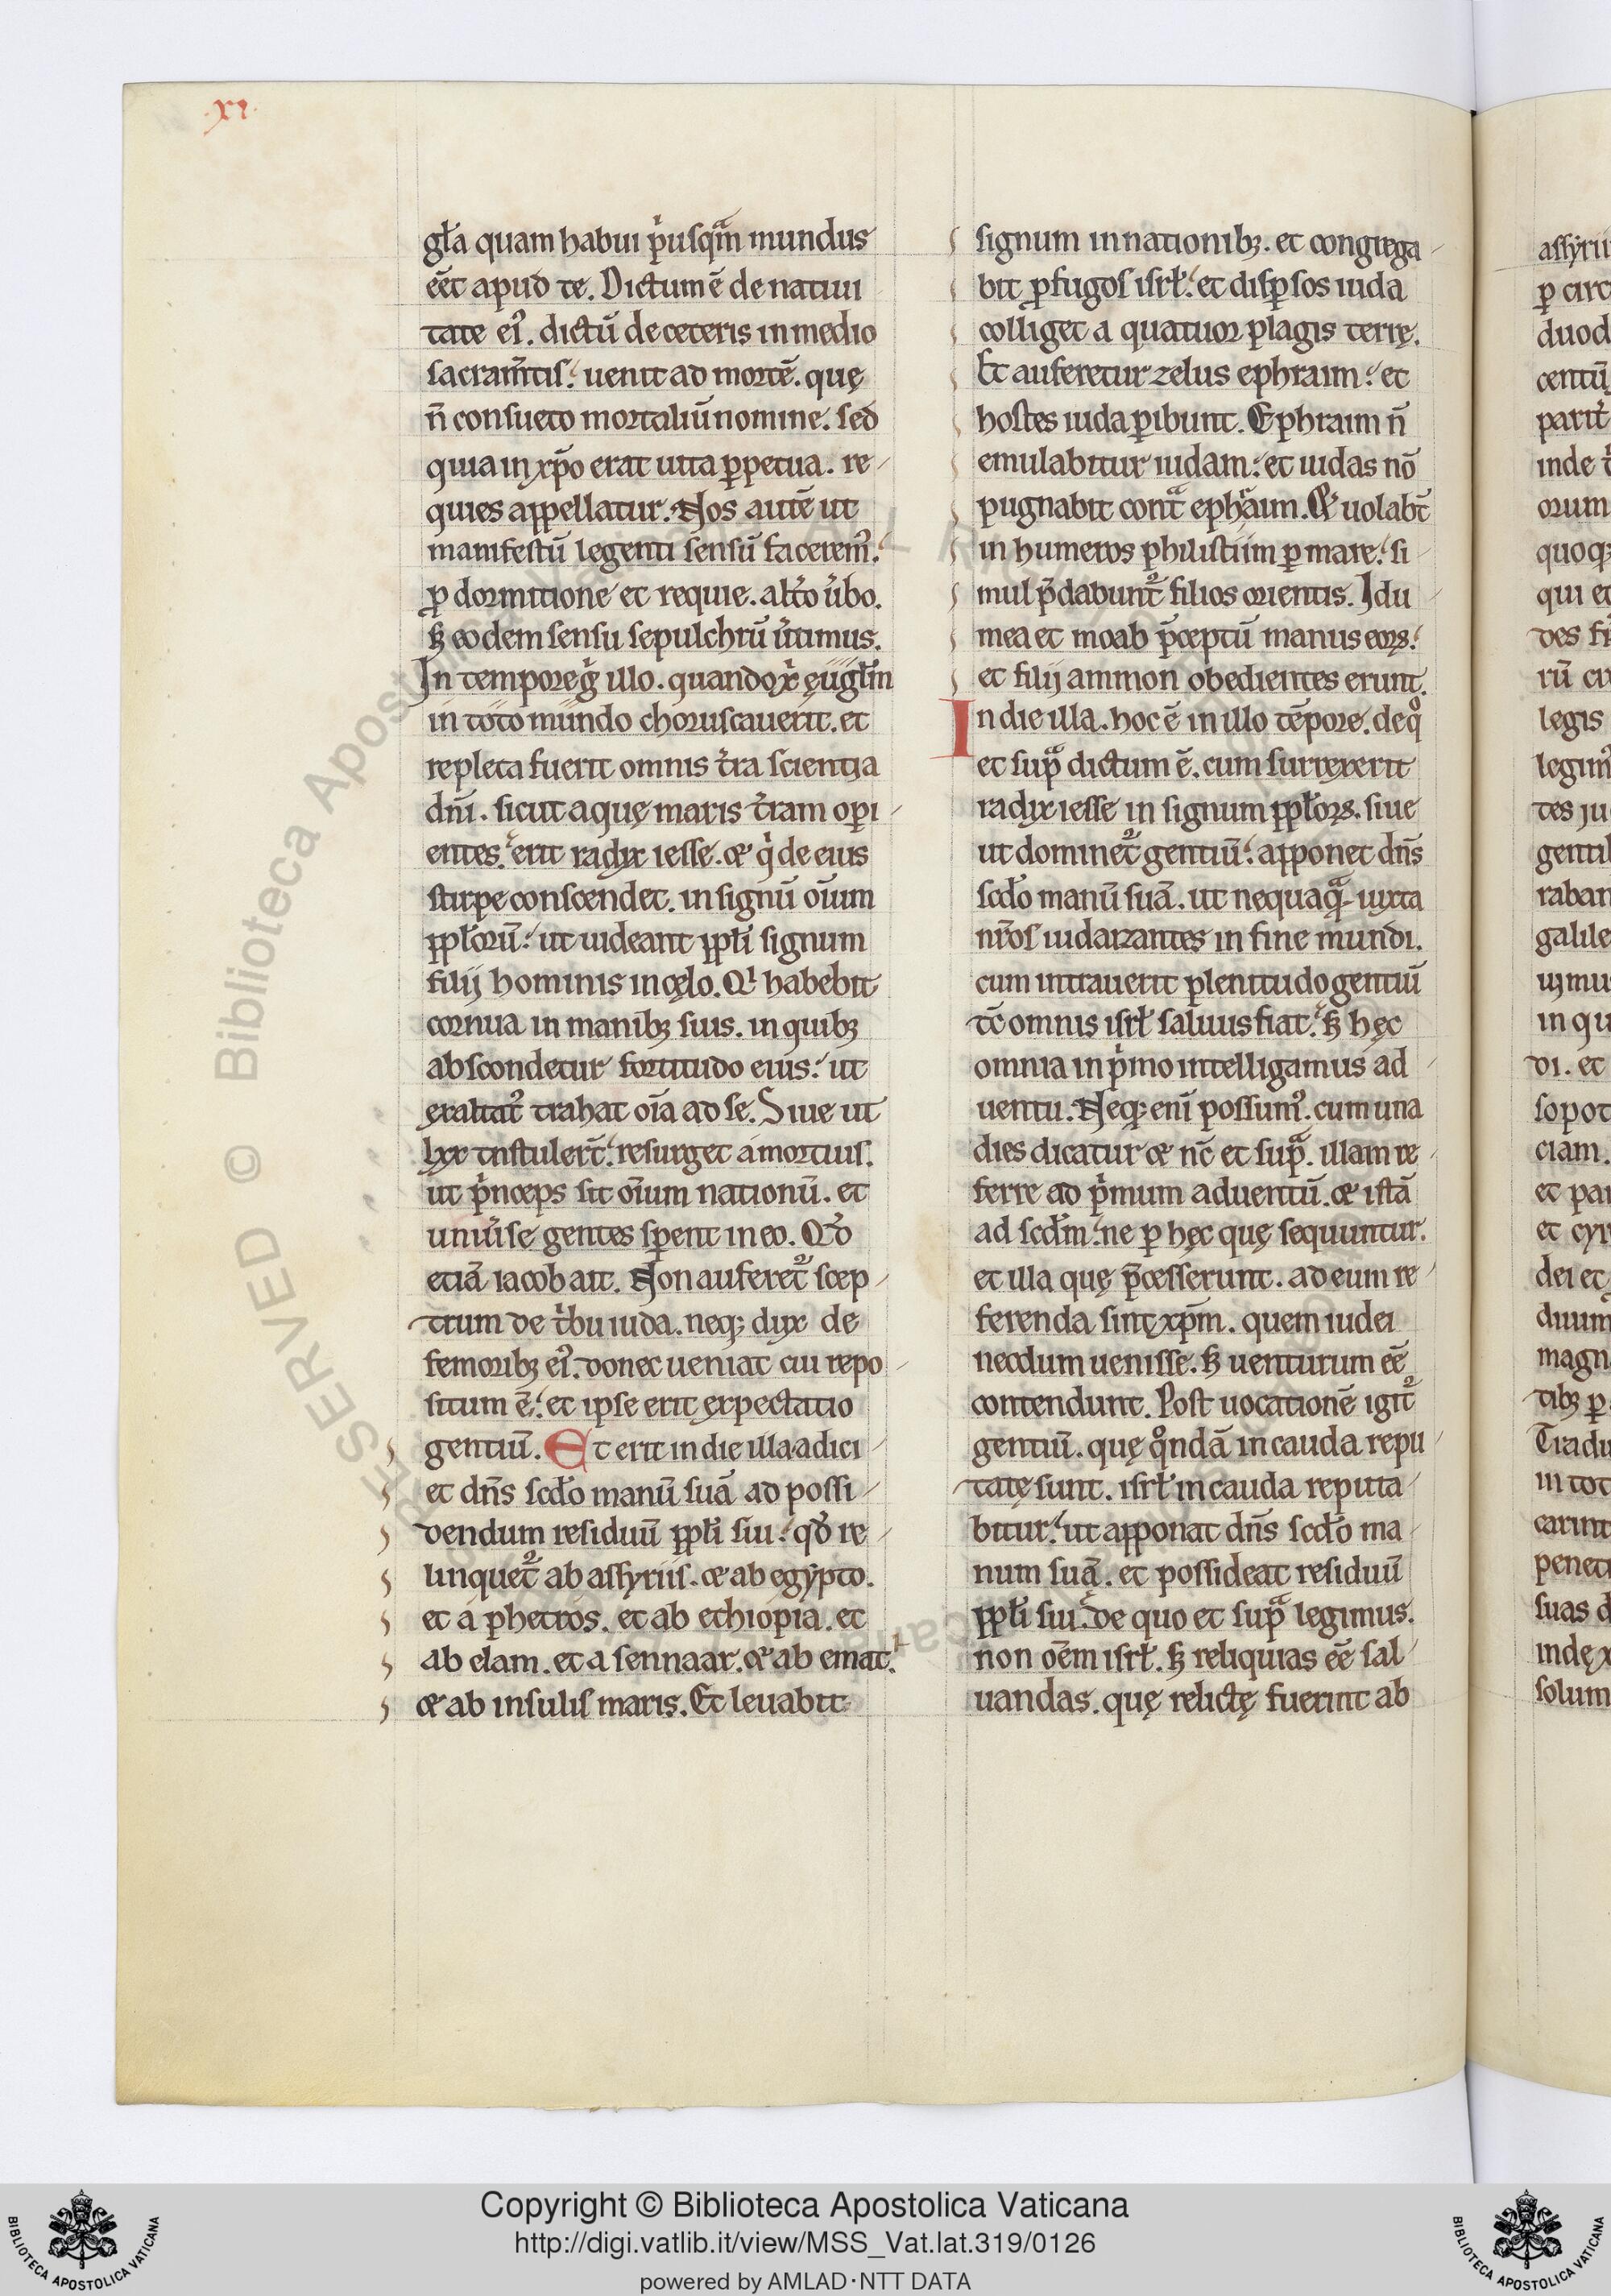 .xi.
gła quam habui p͛usqᷓm mundus
eēt apud te. Dictum ē de natiui
tate ei᾽. dictū de ceteris in medio
sacram̄tis. uenit ad mortē. quę
n̄ consueto mortaliū nomine. sed
quia in xp̄o erat uita ꝑpetua. re
quies appellatur. Nos autē ut
manifestū legenti sensū facerem᾽.
ꝓ dormitione et requie. alt͛o u͛bo.
ꜩ eodem sensu sepulchrū u͛timus.
In tempore g͛ illo. quando x͛ ęuḡłm
in toto mundo choruscauerit. et
repleta fuerit omnis t͛ra scientia
dn̄i. sicut aquę maris t͛ram oꝑi
entes. erit radyx iesse. & q͛ de eius
stirpe conscendet. in signū oīum
ppłorū. ut uideant ppłi signum
filij hominis in cęlo. Qͥ habebit
cornua in manibꝫ suis. in quibꝫ
abscondetur fortitudo eius. ut
exaltat᾽ trahat oīa ad se. Siue ut
lxx tnstulert̄. resurget a mortuis.
ut p͛nceps sit oīum nationū. et
uniu͛se gentes sꝑent in eo. Qđ
etiā iacob ait. Non auferet᷑ scep
trum de t͛bu iuda. neqꝫ dux de
femoribꝫ ei᾽. donec ueniat cui repo
situm ē. et ipse erit expectatio
gentiū. Et erit in die illa. adici
et dn̄s scđo manū suā ad possi
dendum residuū ppłi sui. qđ re
linquet᷑ ab assyriis. & ab egypto.
et a phetros. et ab ethiopia. et
ab elam. et a sennaar. & ab emat.
& ab insulis maris. Et leuabit
signum in nationibꝫ. et congrega
bit ꝓfugos isrł. et disꝑsos iuda
colliget a quatuor plagis terrę.
Et auferetur zelus ephraim. et
hostes iuda ꝑibunt. Ephraim n̄
emulabitur iudam. et iudas nō
pugnabit contᷓ ephᷓim. & uolabt̄
in humeros philistiim ꝑ mare. si
mul p̄dabunt᷑ filios orientis. Idu
mea et moab p̄ceptū manus eoꝝ.
et filij ammon obedientes erunt.
In die illa. hoc ē in illo tēpore. de qͦ
et supᷓ dictum ē. cum surrexerit
radyx iesse in signum ppłoꝝ. siue
ut dominet᷑ gentiū. apponet dn̄s
scđo manū suā. ut nequaqᷓ iuxta
nr̄os iudaizantes in fine mundi.
cum intrauerit plenitudo gentiū
tc̄ omnis isrł saluus fiat. ꜩ hęc
omnia in p͛mo intelligamus ad
uentu. Neqꝫ enī possum᾽. cum una
dies dicatur & nc̄ et supᷓ. illam re
ferre ad p͛mum aduentū. & istā
ad scđm. ne ꝑ hęc quę sequuntur.
et illa quę p̄cesserunt. ad eum re
ferenda sint xp̄m. quem iudei
necdum uenisse. ꜩ uenturum eē
contendunt. Post uocationē igit᷑
gentiū. quę qͦndā in cauda repu
tatę sunt. isrł in cauda reputa
bitur. ut apponat dn̄s scđo ma
num suā. et possideat residuū
ppłi sui. de quo et supᷓ legimus.
non oēm isrł. ꜩ reliquias eē sal
uandas. quę relictę fuerint ab
Copyright © Biblioteca Apostolica Vaticana
http://digi.vatlib.it/view/MSS_Vat.lat.319/0126
powered by AMLAD·NTT DATA
BIBLIOTECA APOSTOLICA VATICANA
BIBLIOTECA APOSTOLICA VATICANA